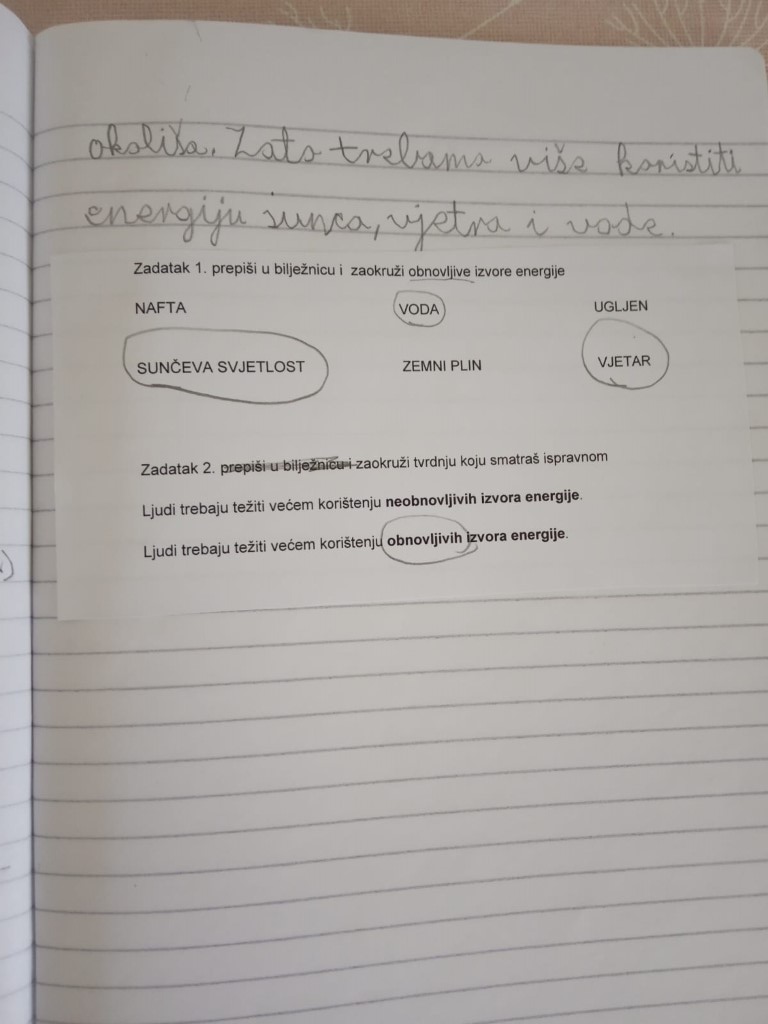 okoliša. Zato trebamo više koristiti
energiju sunca, vjetra i vode.
Zadatak 1. prepiši u bilježnicu i zaokruži obnovljive izvore energije
NAFTA VODA UGLJEN
SUNČEVA SVJETLOST ZEMNI PLIN VJETAR
Zadatak 2. prepiši u bilježnicu i zaokruži tvrdnju koju smatraš ispravnom
Ljudi trebaju težiti većem korištenju neobnovljivih izvora energije.
Ljudi trebaju težiti većem korištenju obnovljivih izvora energije.